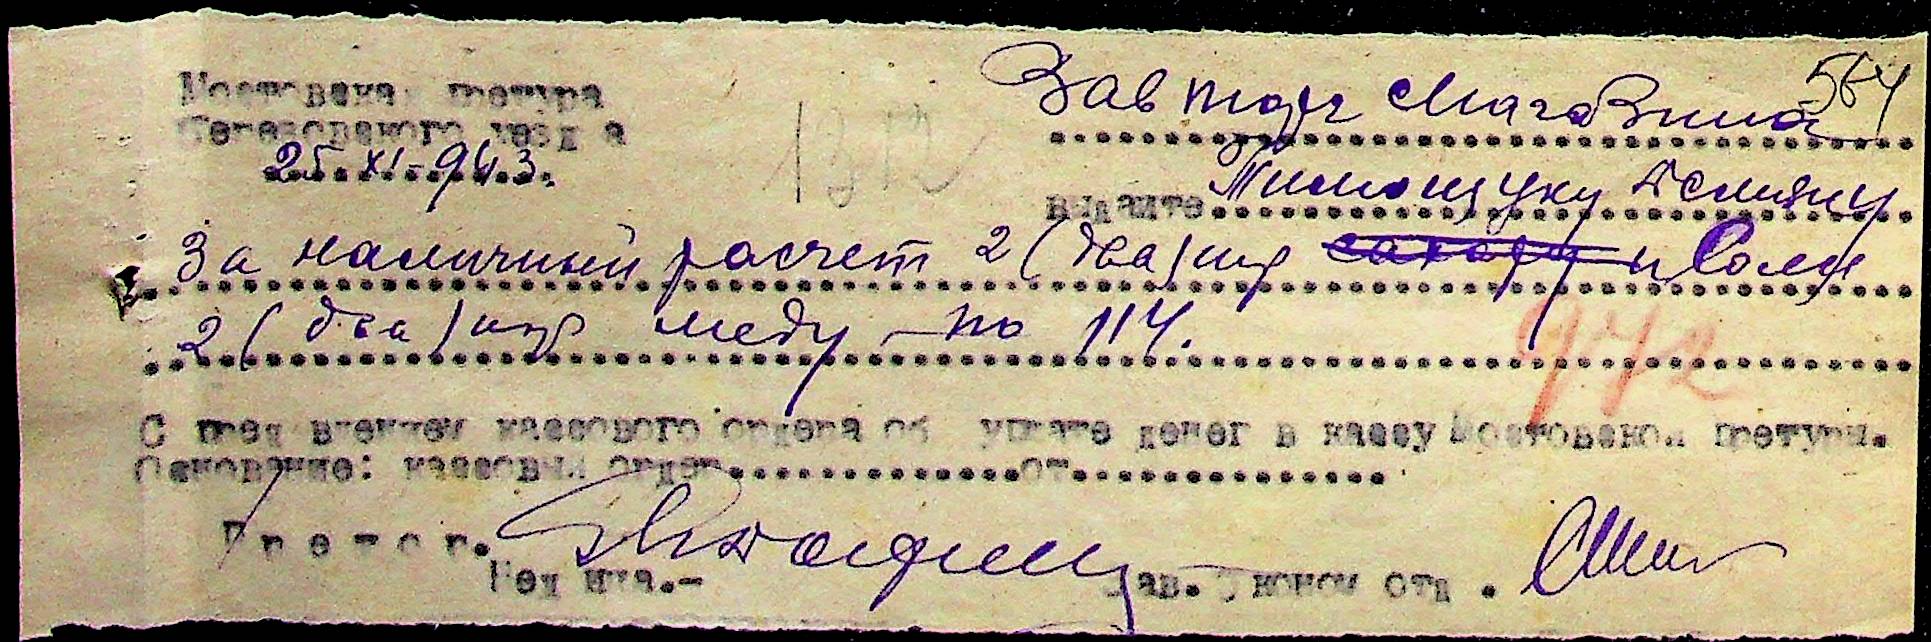 Мостовская претура
Березовского уезда
25.XI-943.
564
Зав торг Магазина
выдайте Тимощуку Демяну
За наличный расчет 2 (два) кгр сахару и Соли
2 (два) кгр меду по 114.
972
С пред'влением кассового ордера об уплате денег в кассу Мостовской претуры.
Основание: кассовый ордер..............от...............
Претор.
Печать.-
Зав. Эконом отд.